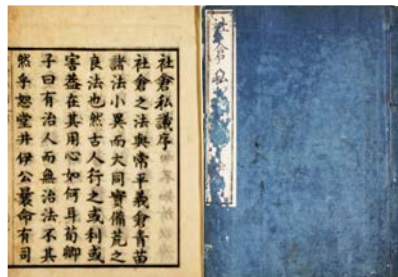 社倉私議序
社倉之法與常平義倉青苗
諸法小異而大同實備荒之
良法也然古人行之或利或
害蓋在其用心如何耳荀卿
子曰有治人而無治法不其
然乎恕堂井伊公曩命有司
社倉私